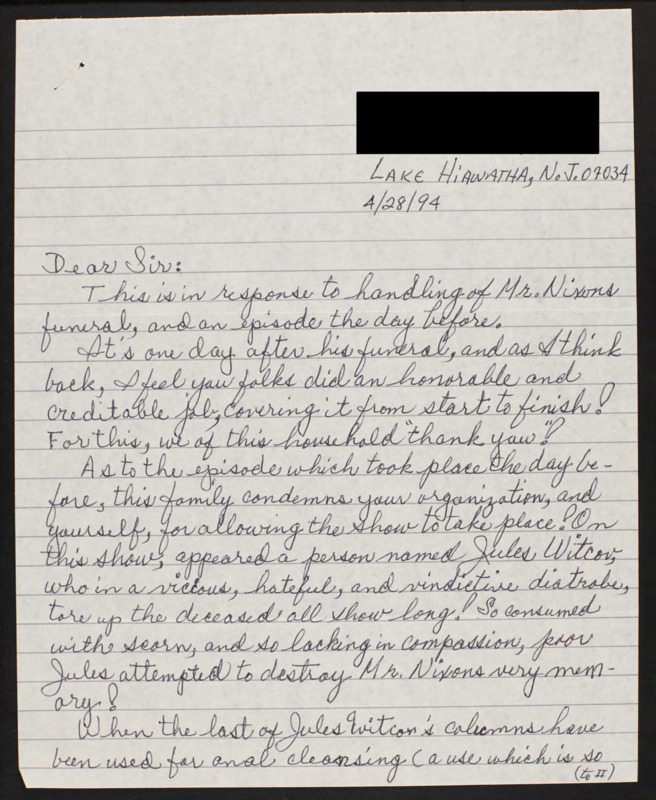 LAKE HIAWATHA, N.J. 07034
4/28/94
Dear Sir:
This is in response to handling of Mr. Nixons
funeral, and an episode the day before.
It's one day after his funeral, and as I think
back, I feel you folks did an honorable and
creditable job, covering it from start to finish!
For this, we of this household "thank you"!
As to the episode which took place the day be-
fore, this family condemns your organization, and
yourself, for allowing the show to take place! On
this show, appeared a person named Jules Witcov,
who in a vicious, hateful, and vindictive diatrabe,
tore up the deceased all show long! So consumed
with scorn, and so lacking in compassion, poor
Jules attempted to destroy Mr. Nixons very mem-
ory!
When the last of Jules Witcov's columns have
been used for anal cleansing (a use which is so
(to II)